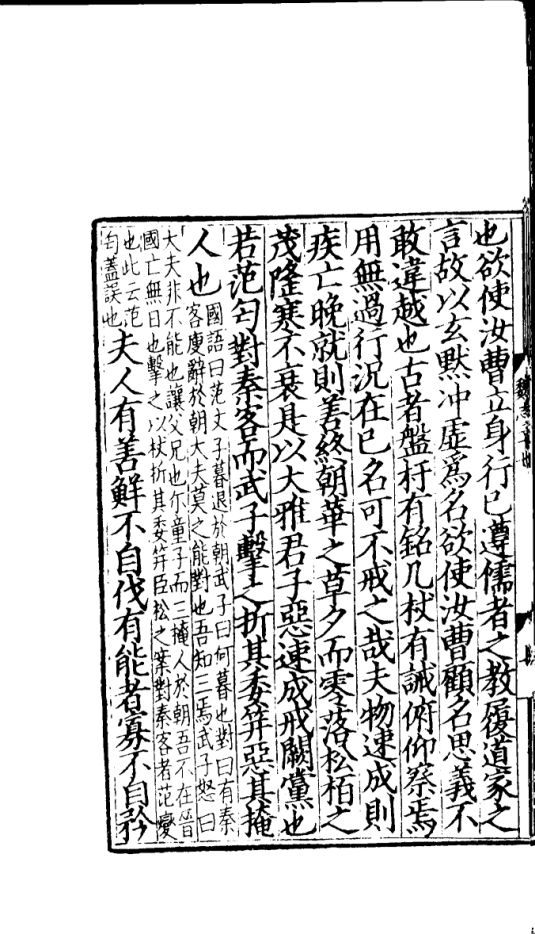 也欲使汝曹立身行己遵儒者之教履道家之
言故以玄默沖虛爲名欲使汝曹顧名思義不
敢違越也古者盤杅有銘几杖有誡俯仰察焉
用無過行況在己名可不戒之哉夫物速成則
疾亡晚就則善終朝華之草夕而零落松柏之
茂隆寒不衰是以大雅君子惡速成戒闕黨也
若范匄對秦客而武子擊之折其委筓惡其掩
人也
國語曰范文子暮退於朝武子曰何暮也對曰有秦
客廋辭於朝大夫莫之能對也吾知三焉武子怒曰
大夫非不能也讓父兄也尒童子而三掩人於朝吾不在晉
國亡無日也擊之以杖折其委筓臣松之案對秦客者范燮
也此云范
匄蓋誤也
夫人有善鮮不自伐有能者寡不自矜